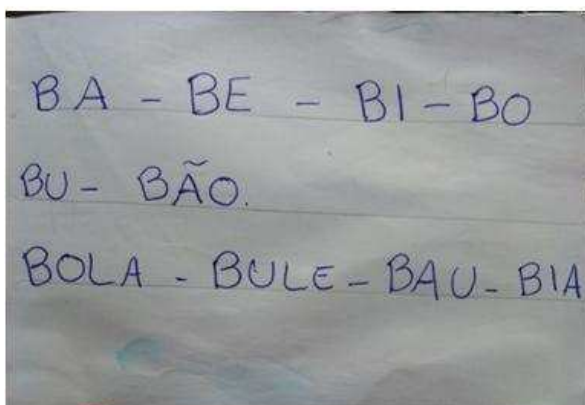 BA - BE - BI - BO
BU - BÃO.
BOLA - BULE - BAU - BIA